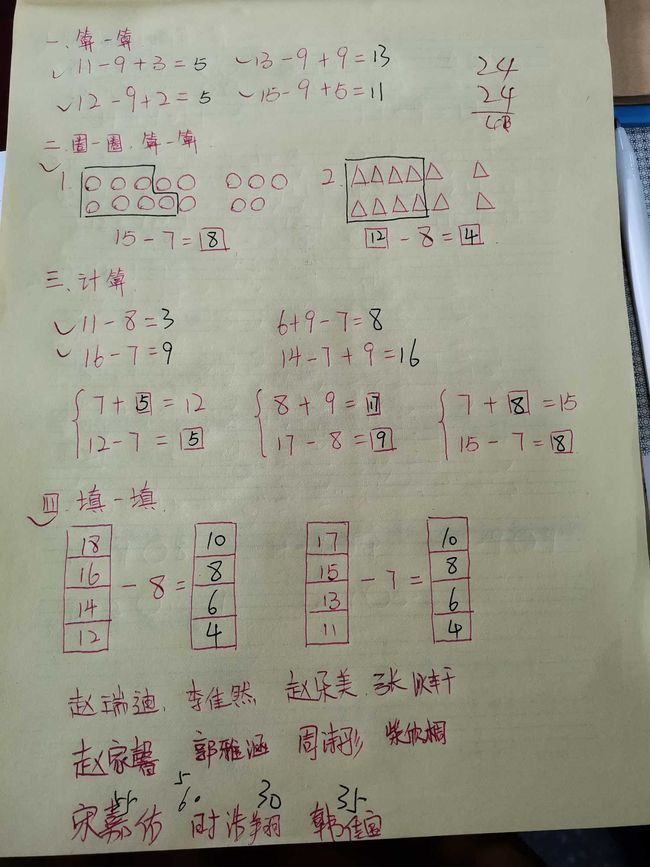 一、算一算
11-9+3=5 13-9+9=13 24
12-9+2=5 15-9+5=11 24
48
二.圈一圈.算一算.
1. 2.
15-7=8 12-8=4
三、计算
11-8=3 6+9-7=8
16-7=9 14-7+9=16
7+5=12 8+9=17 7+8=15
12-7=5 17-8=9 15-7=8
四.填一填.
18 10 17 10
16 8 15 8
-8= -7=
14 6 13 6
12 4 11 4
赵瑞迪. 李佳然 赵朵美.
赵家馨 郭雅涵 周诗彤
5
55 60 30 35
宋嘉佑 时浩翔 韩佳宜